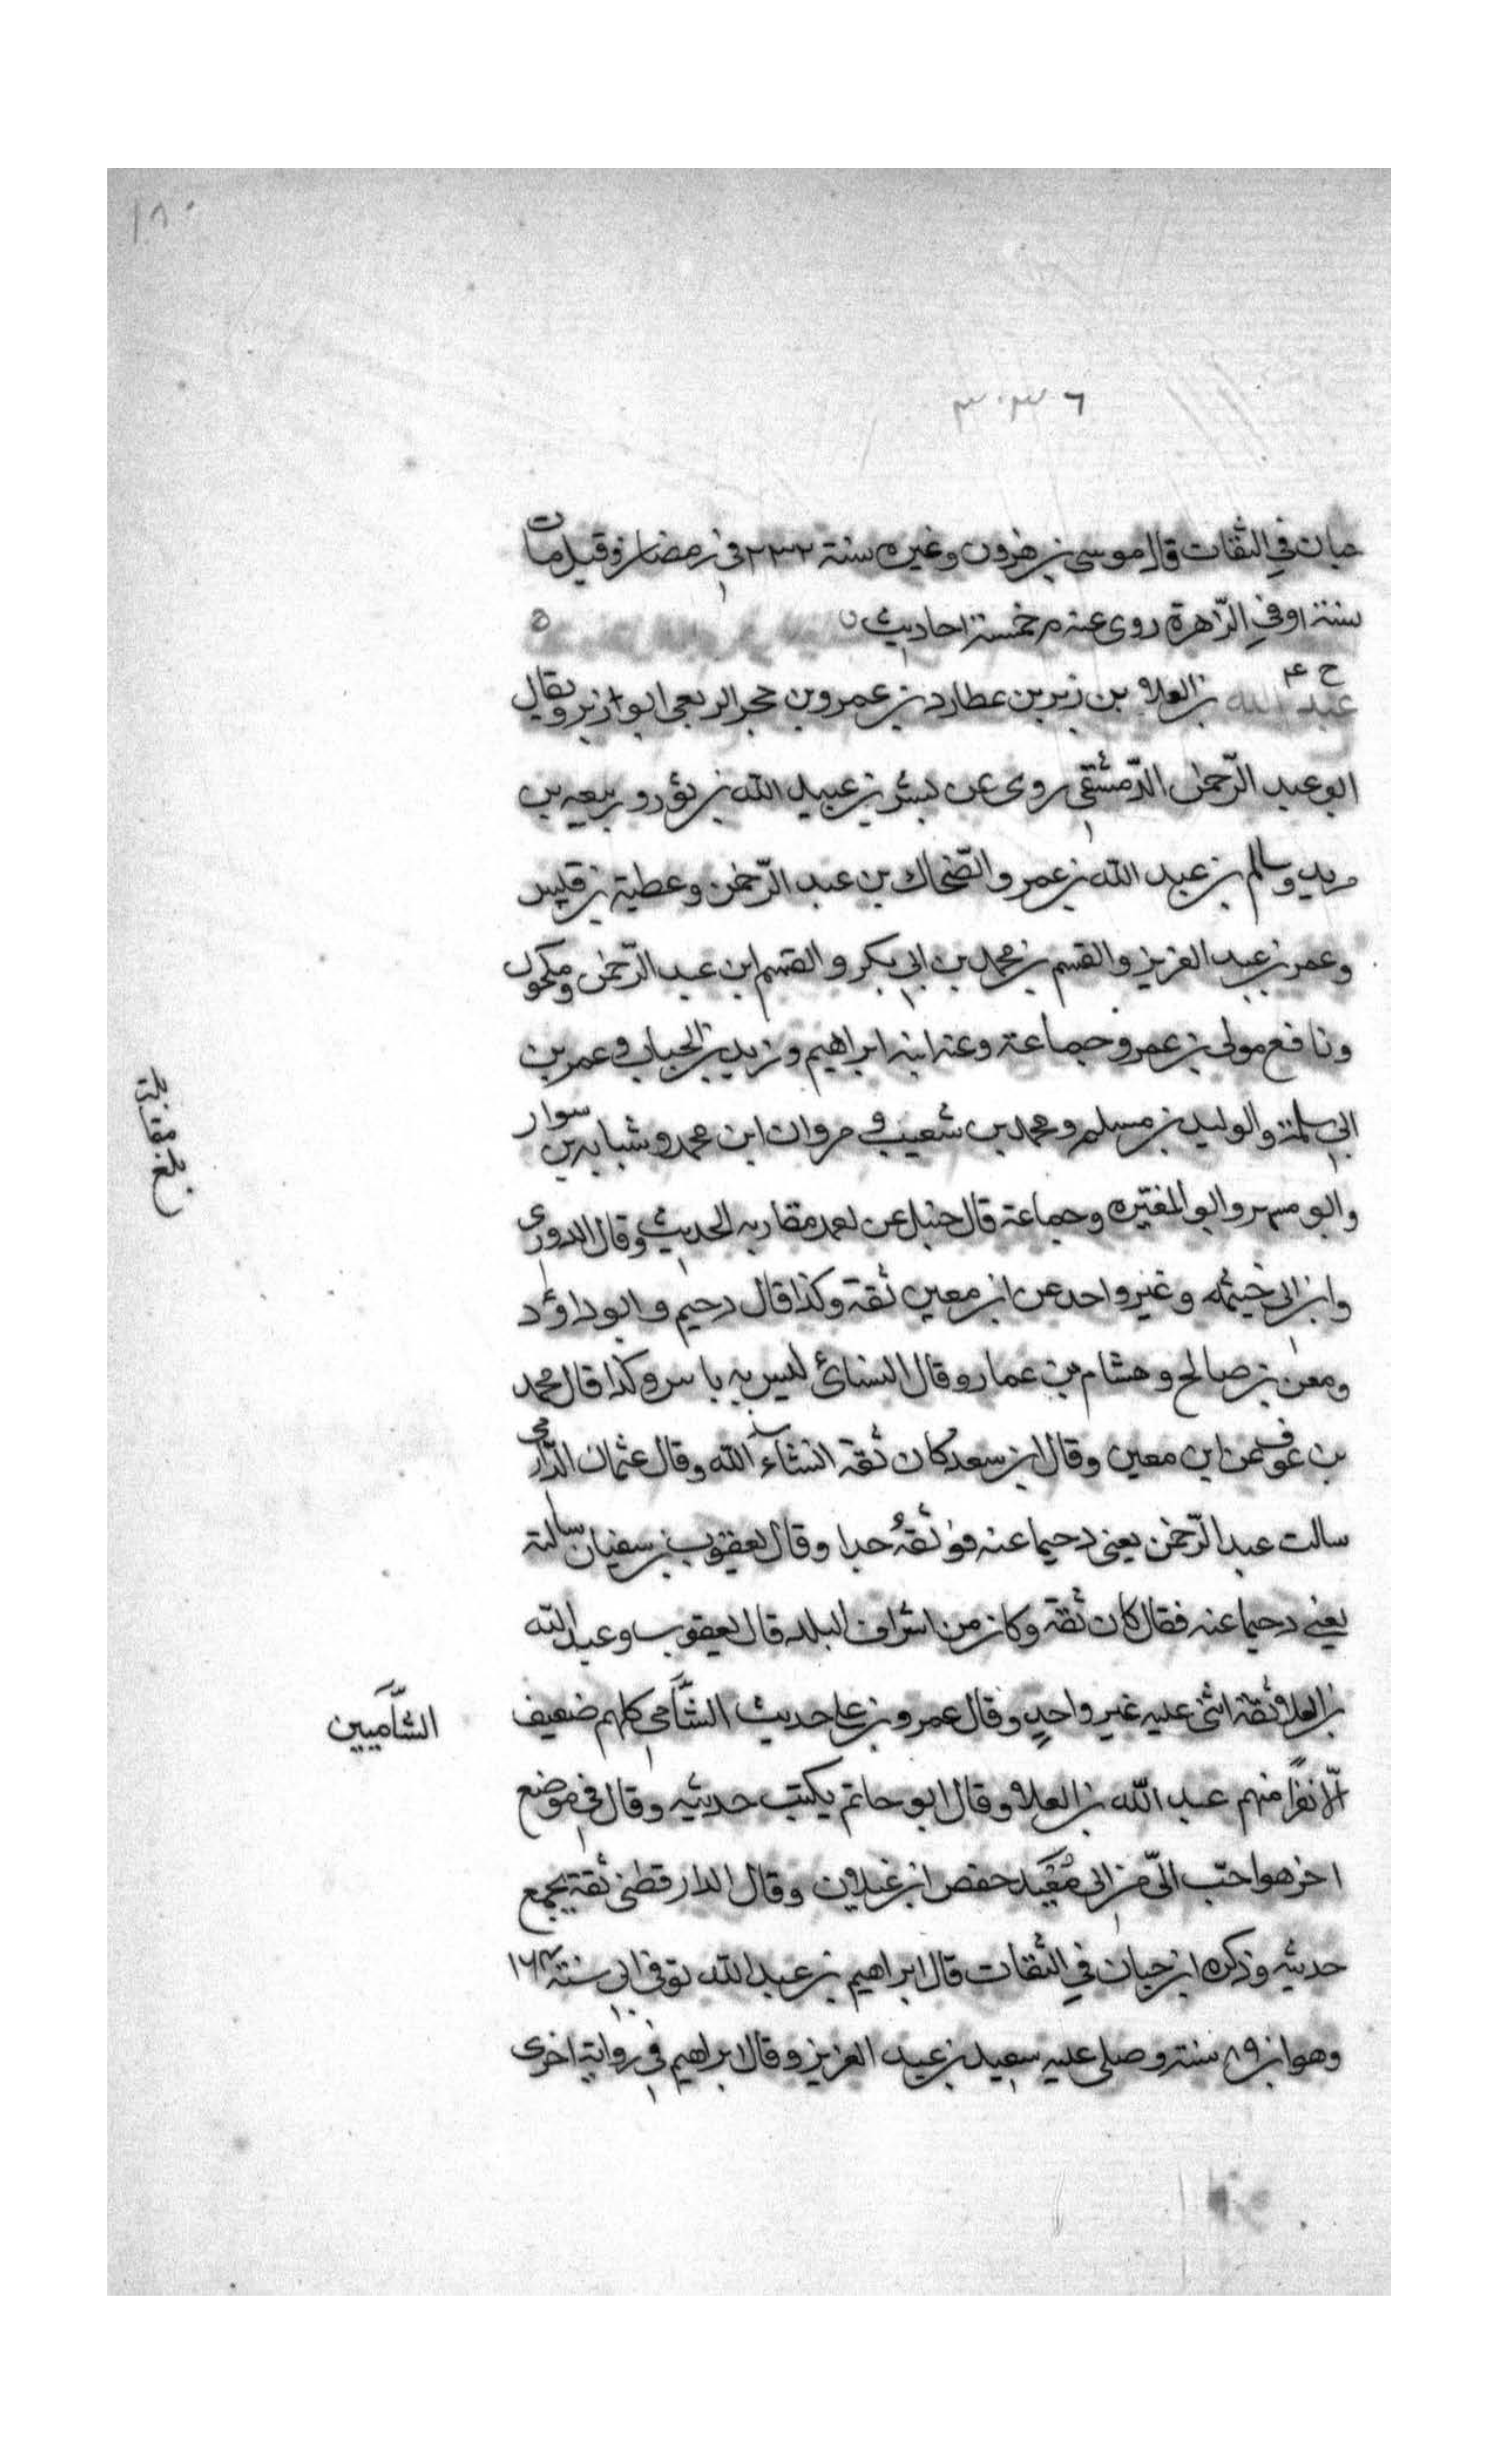 ١٨٠
٣٠٣٦
حبان في الثقات قال موسى بن هرون وغيره سنة ٢٣٢ في رمضان وقيل مات
سنة او في الزهرة روى عنه م خمسة احاديث
خ ع
عبد الله بن العلاء بن زبر بن عطارد بن عمرو بن حجر الربعي ابو زبر ويقال
ابو عبد الرّحمن الدّمشقي روى عن بسر بن عبيد الله بن ثور وربيعه بن
مريد وسالم بن عبد الله بن عمر والضّحاك بن عبد الرّحمن وعطية بن قيس
وعمر بن عبد العزيز والقسم بن محمد بن ابي بكر والقسم ابن عبد الرّحمن ومكحول
ونافع مولى بن عمر وجماعة وعنه ابنه ابراهيم وزيد بن الحباب وعمر بن
ابي سلمة والوليد بن مسلم ومحمد بن شعيب و مروان ابن محمد وشبابه بن سوار
وابو مسهر وابو المغيره وجماعة قال حنبل عن احمد مقاربه الحديث وقال الدوري
وابن ابي خيثمه وغير واحد عن ابن معين ثقة وكذا قال دحيم وابو داؤد
ومعن بن صالح وهشام بن عمار وقال النسائ ليس به باس وكذا قال محمد
بن عوف عن ابن معين وقال ابن سعد كان ثقة انشاء الله وقال عثمان الدّارمي
سالت عبد الرّحمن يعني دحيما عنه فوثقهُ جدا وقال يعقوب بن سفيان سالته
يعني دحيما عنه فقال كان ثقة وكان من اشراف البلد قال يعقوب وعبد الله
بن العلاء ثقة اثنى عليه غير واحدٍ وقال عمرو بن علي حديث الشّامي كلهم ضعيف
الشّاميين
الّا نفرًا منهم عبد الله بن العلاء وقال ابو حاتم يكتب حديثه وقال في موضع
اخر هو احبّ اليّ من ابي مُعَيد حفص ابن غيلان وقال الدار قطني ثقة يجمع
حديثه وذكره ابن حبان في الثقات قال ابراهيم بن عبد الله توفي ابي سنة ١٦٤
وهو ابن ٨٩ سنة وصلى عليه سعيد بن عبد العزيز وقال ابراهيم في رواية اخرى